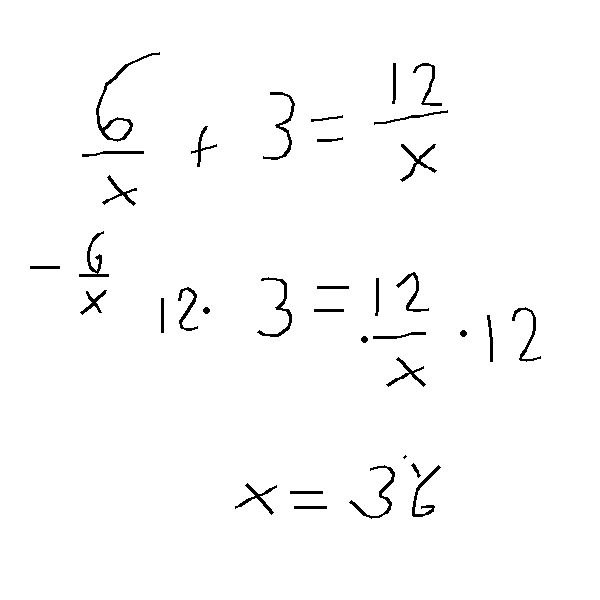 6/x + 3 = 12/x
- 6/x 12· 3 = ·12/x ·12
x = 36